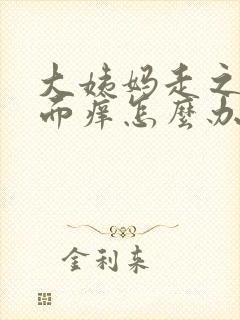 大姨妈走之
而痒怎麼办
金利来